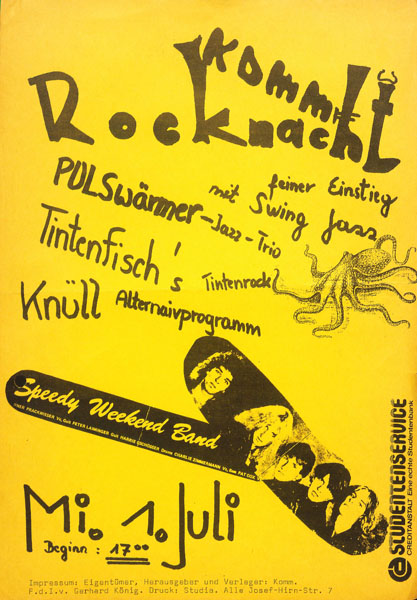 Komm-
Rocknacht
feiner Einstieg
mit Swing Jazz
PULSwärmer-Jazz-Trio
Tintenfisch's Tintenrock
Knüll Alternaivprogramm
Speedy Weekend Band
PETER LAININGER HARRIE CHARLIE ZIMMERMANN
Mi. 1. Juli
Beginn: 17⁰⁰
STUDENTENSERVICE
CREDITANSTALT Eine echte Studentenbank
Impressum: Eigentümer, Herausgeber und Verleger: Komm.
F.d.I.v. Gerherd König. Druck: Studia. Alle Josef-Hirn-Str. 7